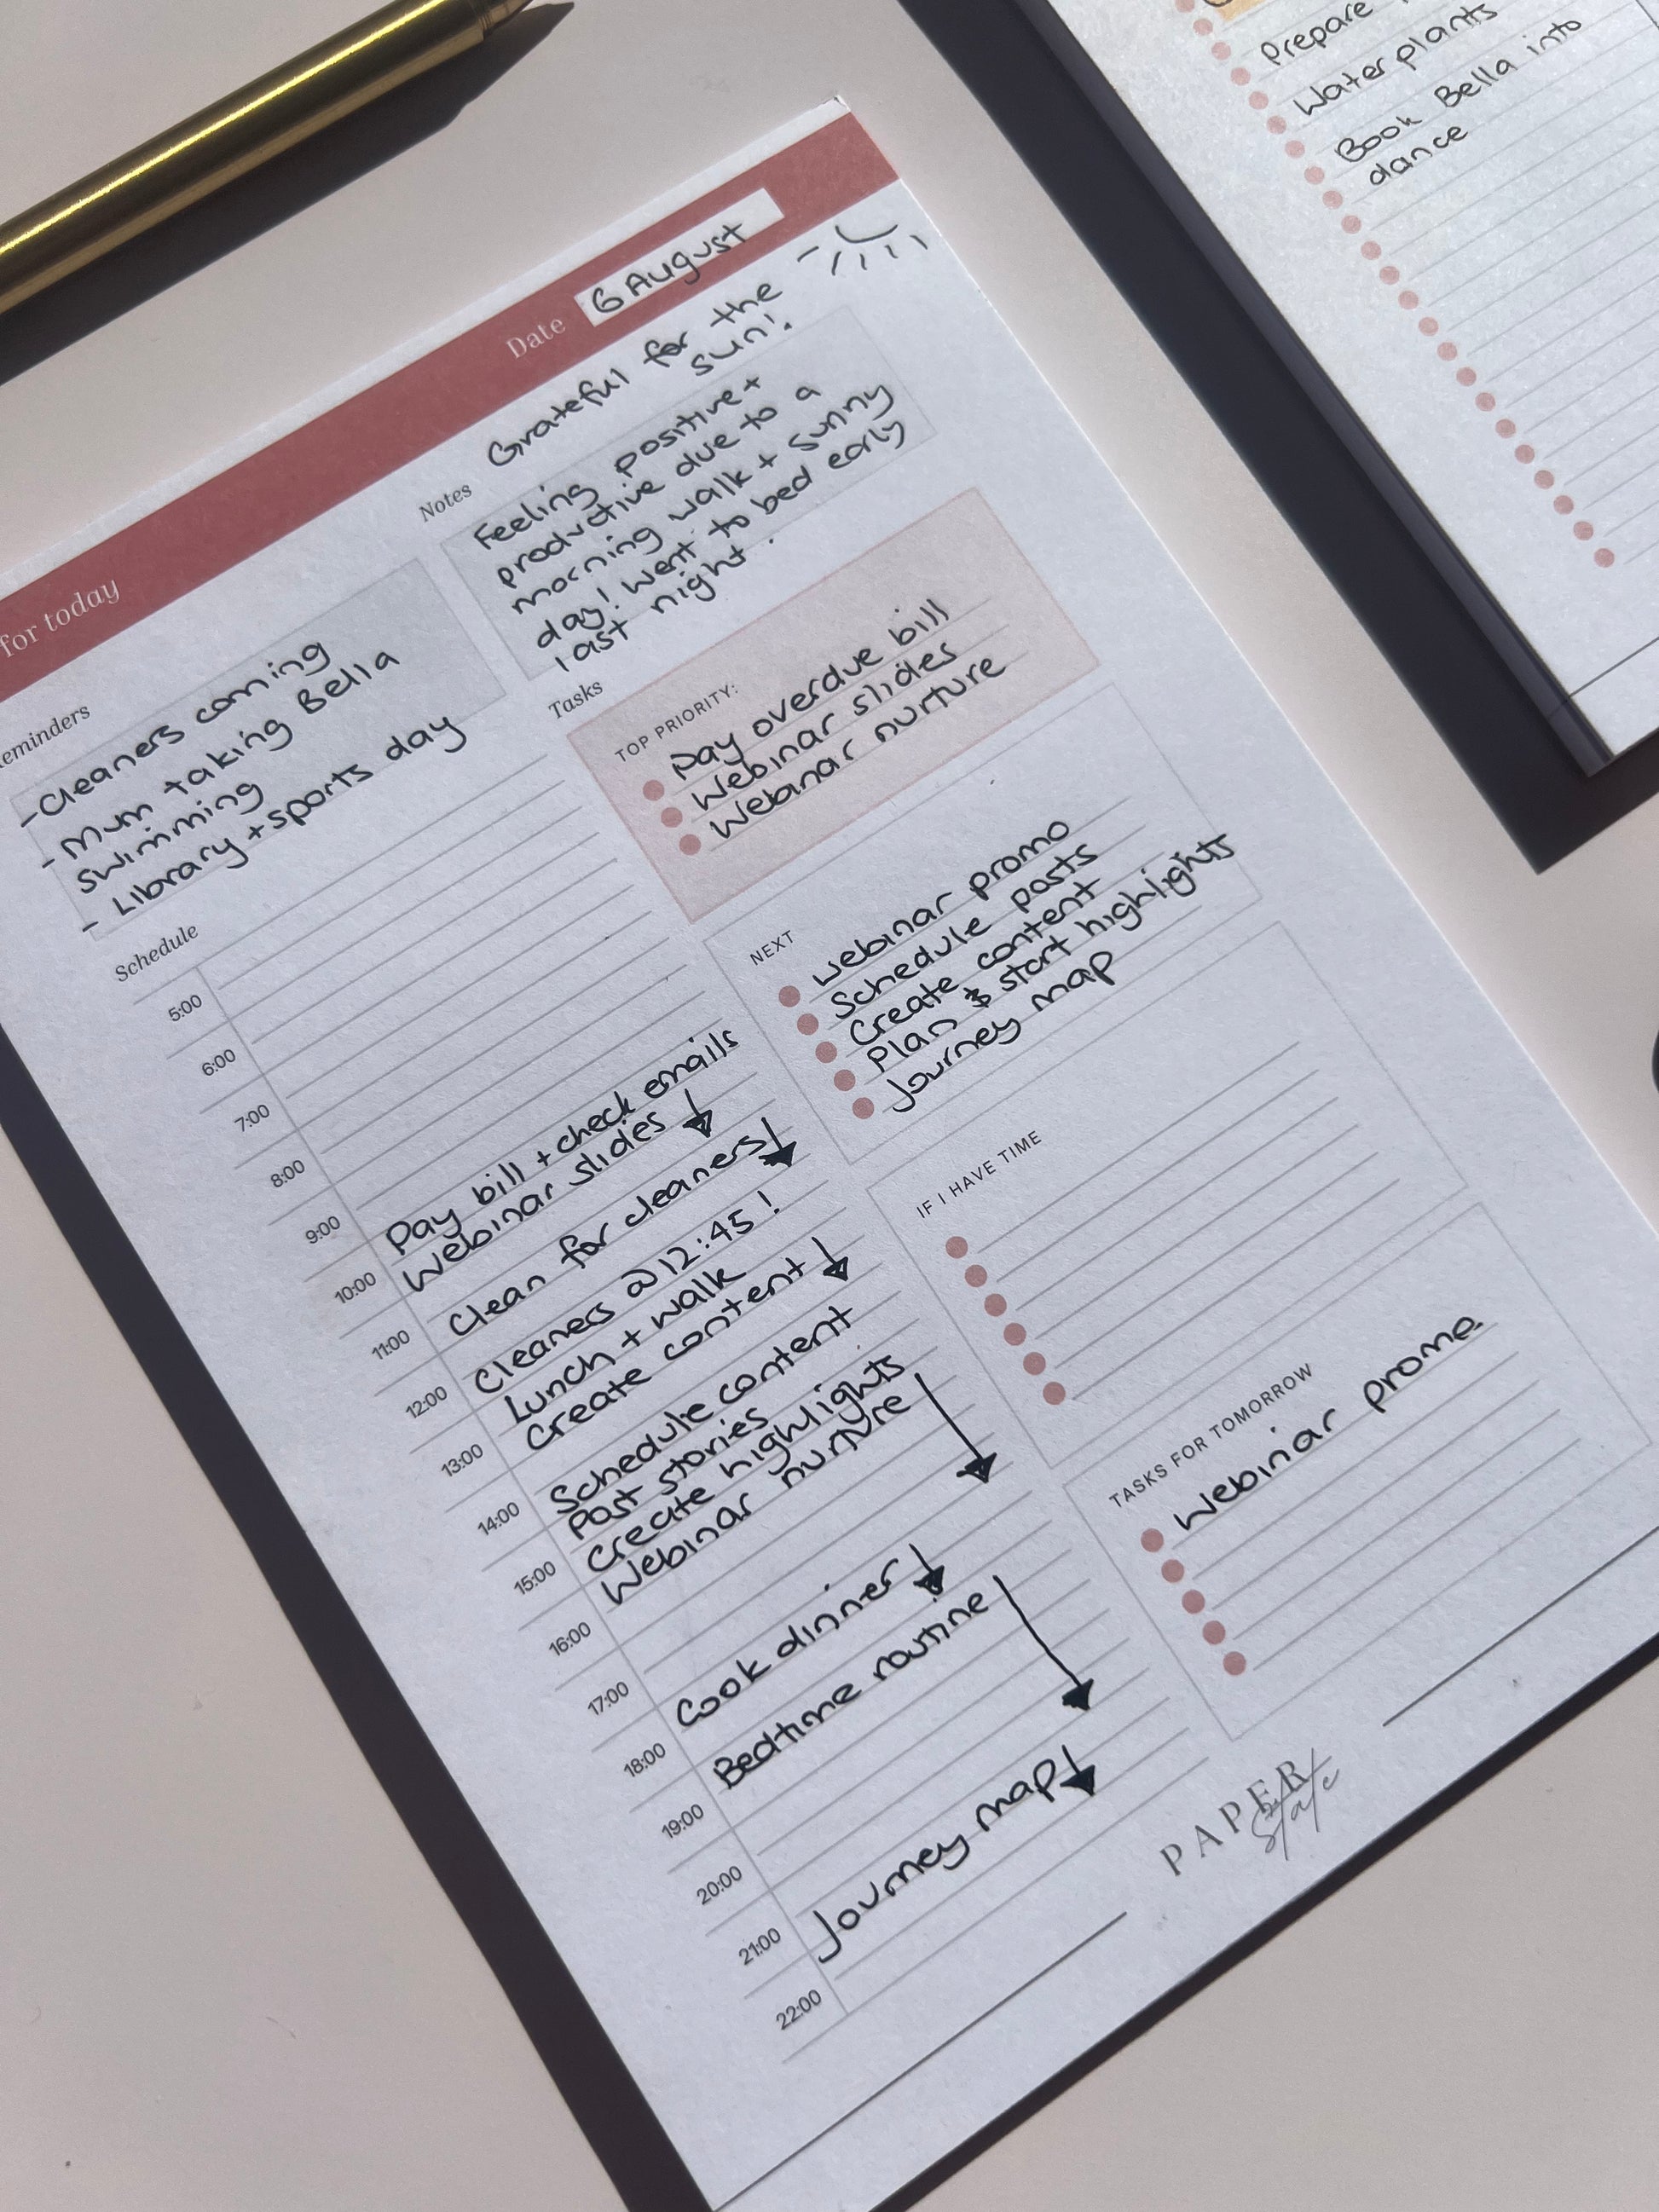 for today
Date 6 August
Reminders
-Cleaners coming
- Mum taking Bella
swimming
- Library + sports day
Notes
Grateful for the
sun!
Feeling positive +
productive due to a
morning walk + sunny
day! Went to bed early
last night.
Schedule
5:00
6:00
7:00
8:00
9:00 Pay bill + check emails
Webinar slides
10:00
Clean for cleaners
11:00
Cleaners @ 12:45!
12:00
Lunch + walk
Create content
13:00
Schedule content
14:00
Post stories
Create highlights
15:00
Webinar nurture
16:00
17:00
Cook dinner
18:00
Bedtime routine
19:00
20:00
21:00
Journey map
22:00
Tasks
TOP PRIORITY:
Pay overdue bill
Webinar slides
Webinar nurture
NEXT
Webinar promo
Schedule posts
Create content
Plan & start highlights
Journey map
IF I HAVE TIME
TASKS FOR TOMORROW
Webinar promo
PAPER
State
Prepare
Water plants
Book Bella into
dance